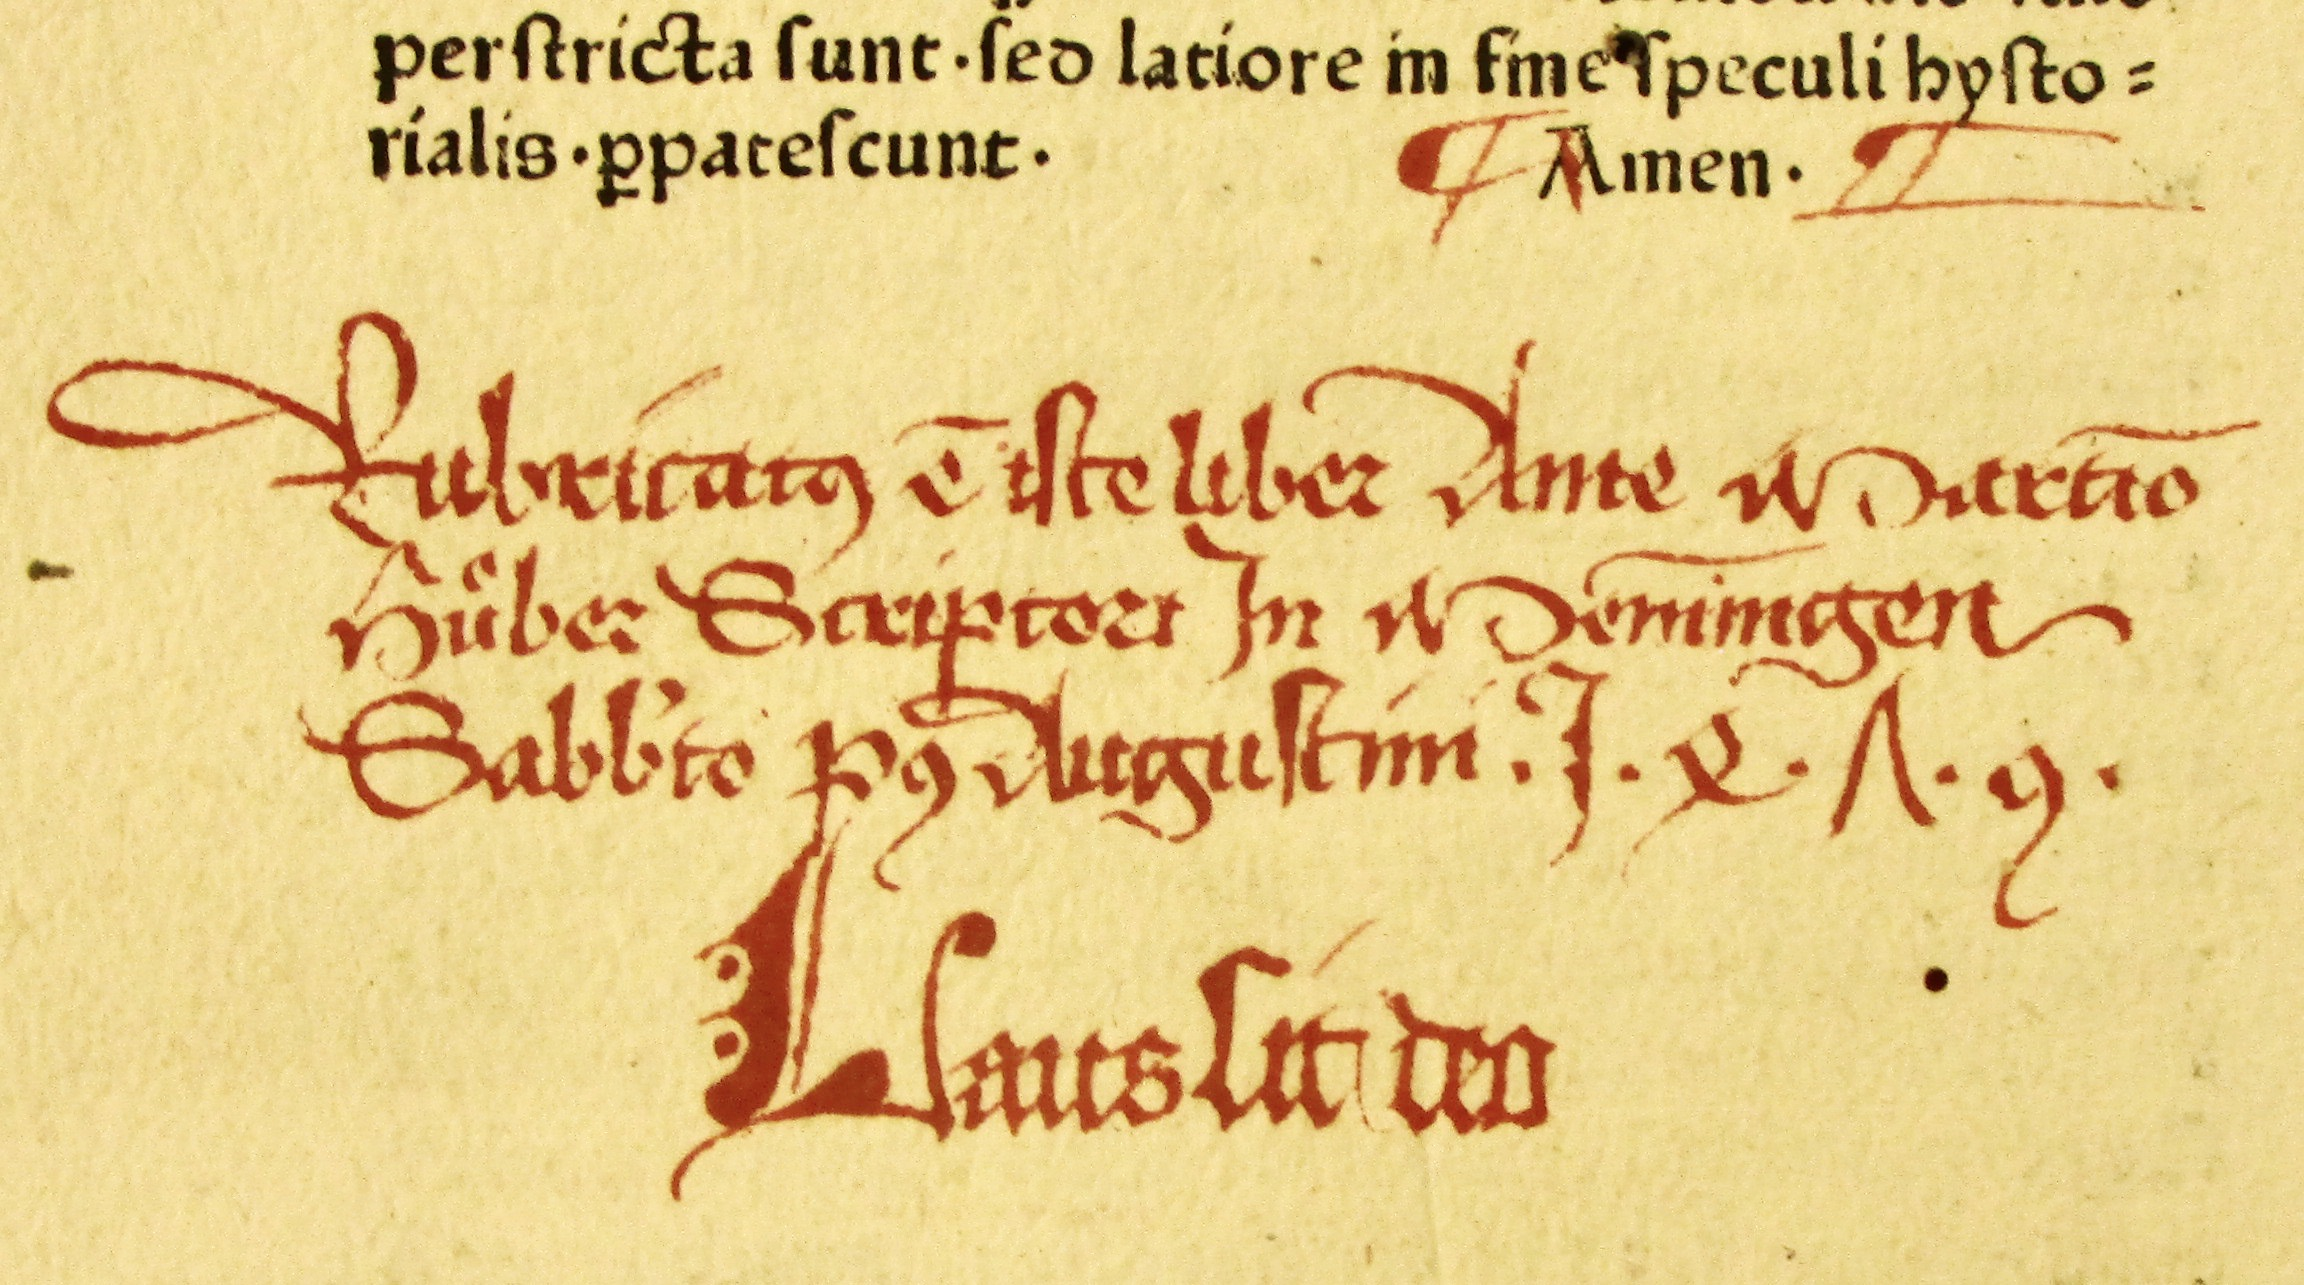 perſtricta ſunt · ſed latiore in fine ſpeculi hyſto⸗
rialis · ꝑpateſcunt ·
¶ Amen ·
Rubricatꝰ ē iſte liber Ante Martīo
Hůber Scriptori In Mōnīngen
Sabb'to pꝰ Auguſtini . J . X . Λ . 9 .
Laus ſit deo